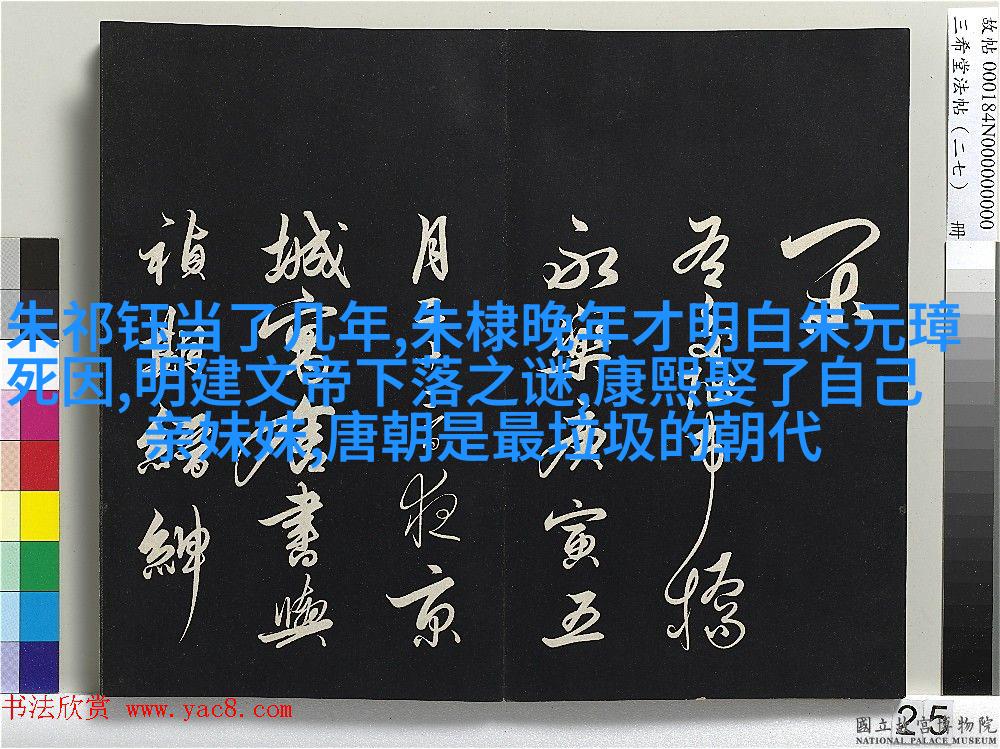 故帖 000184N000000000
三希堂法帖（二七） 冊
永樂庚寅五
月十 夜京
城寓舍書與
禎期縉紳
朱祁钰当了几年,朱棣晚年才明白朱元璋
死因,明建文帝下落之谜,康熙娶了自己
亲妹妹,唐朝是最垃圾的朝代
书法欣赏 www.yac8.com
25
國立故宮博物院
NATIONAL PALACE MUSEUM